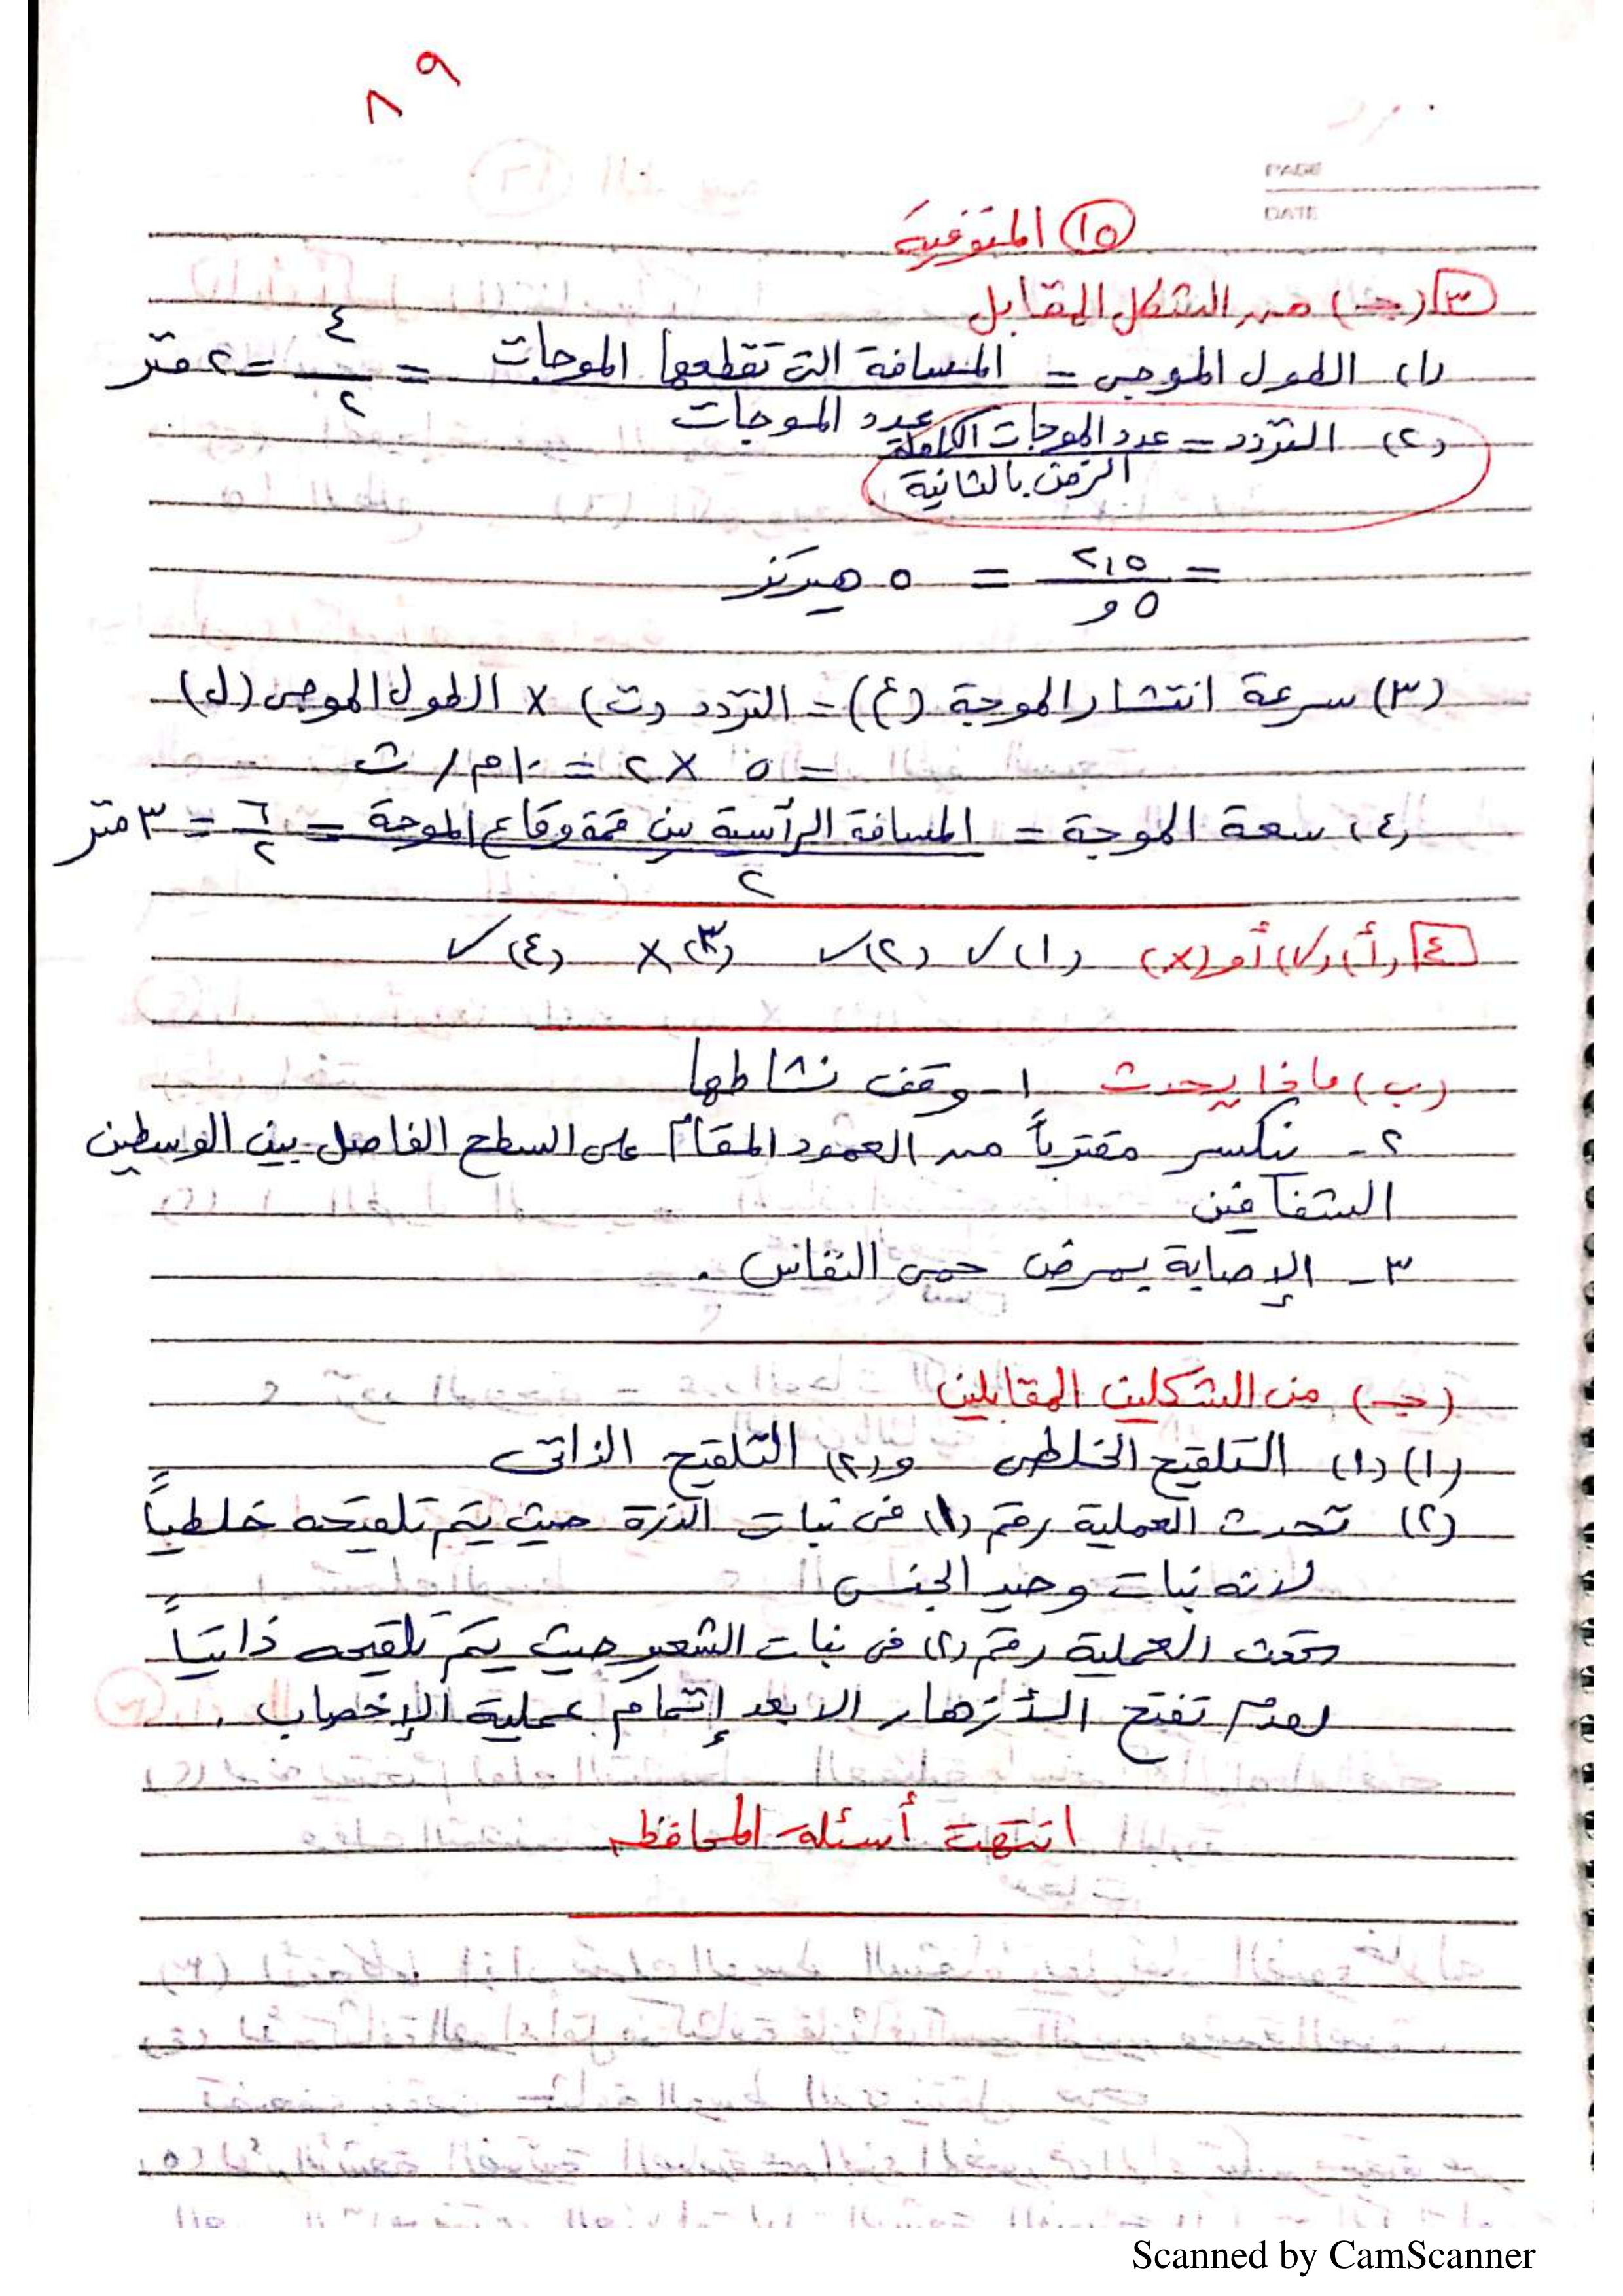 ٨٩
PAGE
DATE
١٥ المنوفية
٣ (جـ) من الشكل المقابل
(١) الطول الموجى = المسافة التى تقطعها الموجات / عدد الموجات = ٤ / ٢ = ٢ متر
(٢) التردد = عدد الموجات الكاملة / الزمن بالثانية
= ٢,٥ / ٥و = ٥ هيرتز
(٣) سرعة انتشار الموجة (ع) = التردد (ت) × الطول الموجى (ل)
= ٥ × ٢ = ١٠ م / ث
(٤) سعة الموجة = المسافة الرأسية بين قمة وقاع الموجة / ٢ = ٦ / ٢ = ٣ متر
٤ (أ) (✓) أو (×) (١) ✓ (٢) ✓ (٣) × (٤) ✓
(ب) ماذا يحدث ١- وقف نشاطها
٢- ينكسر مقترباً من العمود المقام على السطح الفاصل بين الوسطين
الشفافين
٣- الإصابة بمرض حمى النفاس .
(جـ) من الشكلين المقابلين
(١) (١) التلقيح الخلطى و(٢) التلقيح الذاتى
(٢) تحدث العملية رقم (١) فى نبات الذرة حيث يتم تلقيحه خلطياً
لانه نبات وحيد الجنس
العملية رقم (٢) فى نبات الشعير حيث يتم تلقيحه ذاتياً
لعدم تفتح الأزهار الا بعد إتمام عملية الإخصاب .
انتهت أسئلة المحافظة
Scanned by CamScanner